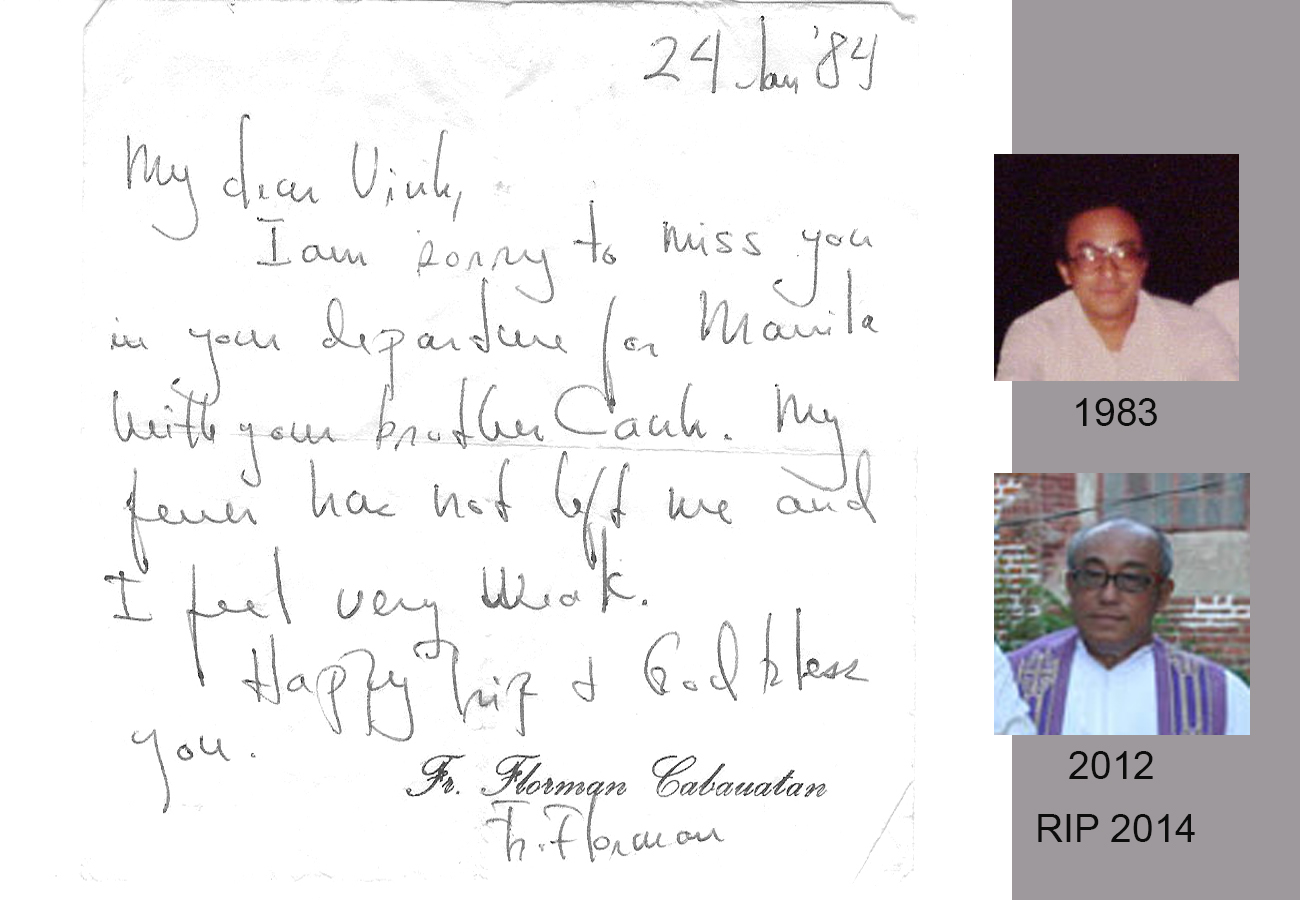 24 Jan '84
My dear Vinh,
I am sorry to miss you
in your departure for Manila
with your brother Canh. My
fever has not left me and
I feel very weak.
Happy trip & God bless
you.
Fr. Florman Cabauatan
Fr. Florman
1983
2012
RIP 2014